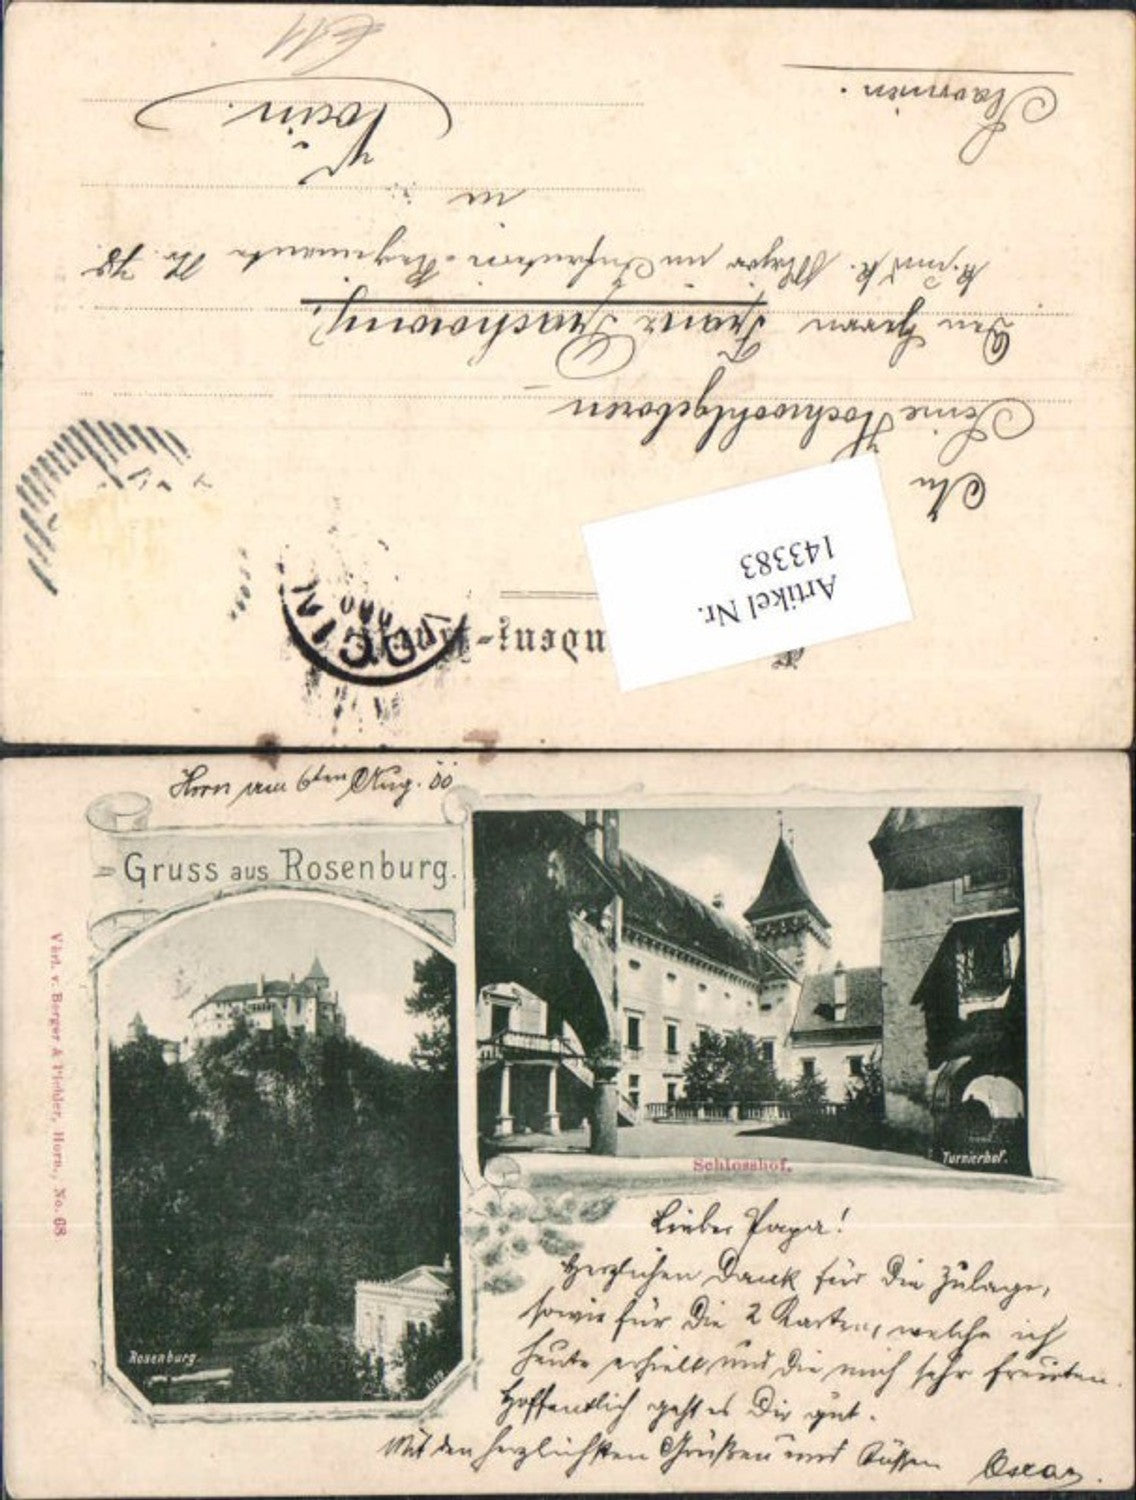 Artikel Nr.
143383
An
Seine Hochwohlgeboren
Den Herrn Franz
k. und k. Major im Infanterie-Regimente Nr. 78
in
Slavonien.
Horn am 6ten Aug. 00
Gruss aus Rosenburg.
Rosenburg.
Schlosshof.
Turnierhof.
Verl. v. Berger & Fiedler, Horn., No. 68
Lieber Papa!
Herzlichen Dank für die Zulage,
sowie für die 2 Karten, welche ich
heute erhielt und die mich sehr freuten.
Hoffentlich geht es Dir gut.
Mit den herzlichsten Grüßen und Küssen Oscar.